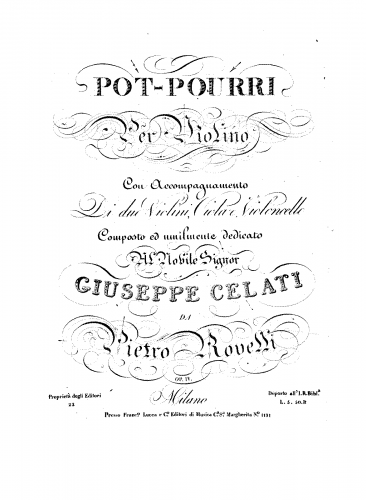 POT-POURRI
Per Violino
Con Accompagnamento
Di due Violini, Viola e Violoncello
Composto ed umilmente dedicato
Al Nobile Signor
GIUSEPPE CELATI
DA
Pietro Rovelli
OP. IV.
Milano
Proprietà degli Editori
Deposto all'I. R. Bibl.ª
22
L. 5. 50. It
Presso Franc.º Lucca e C.º Editori di Musica C.ª S.ª Margherita N.º 1121